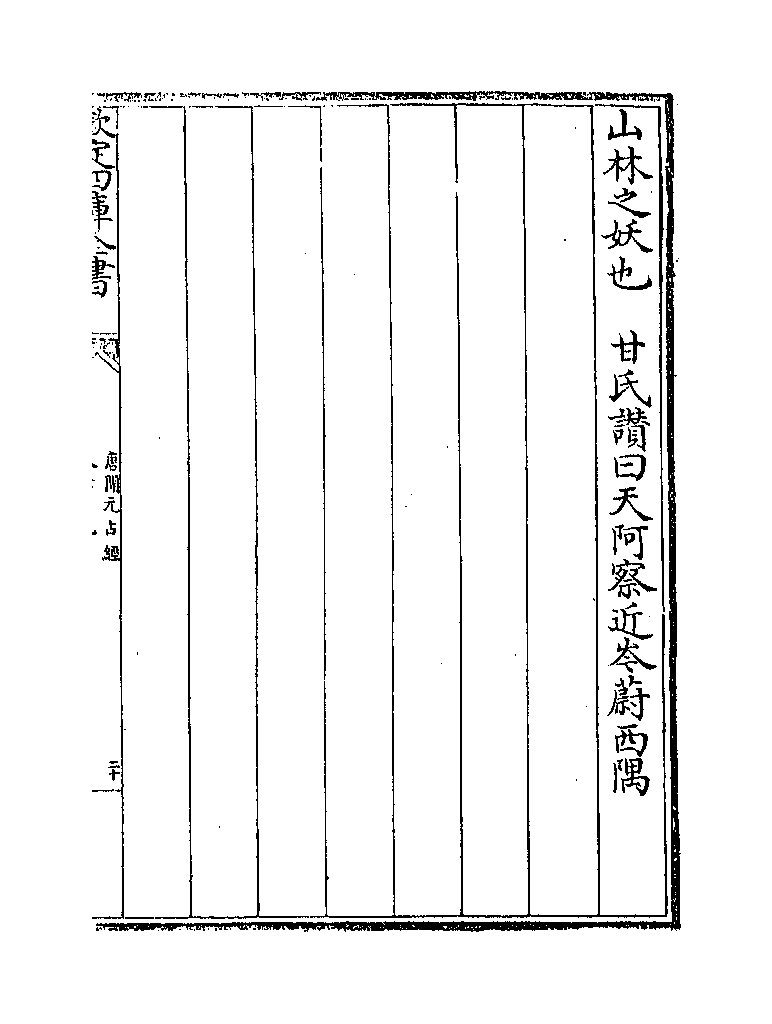 山林之妖也　甘氏讃曰天阿察近岺蔚西隅
欽定四庫全書
唐開元占經
二十